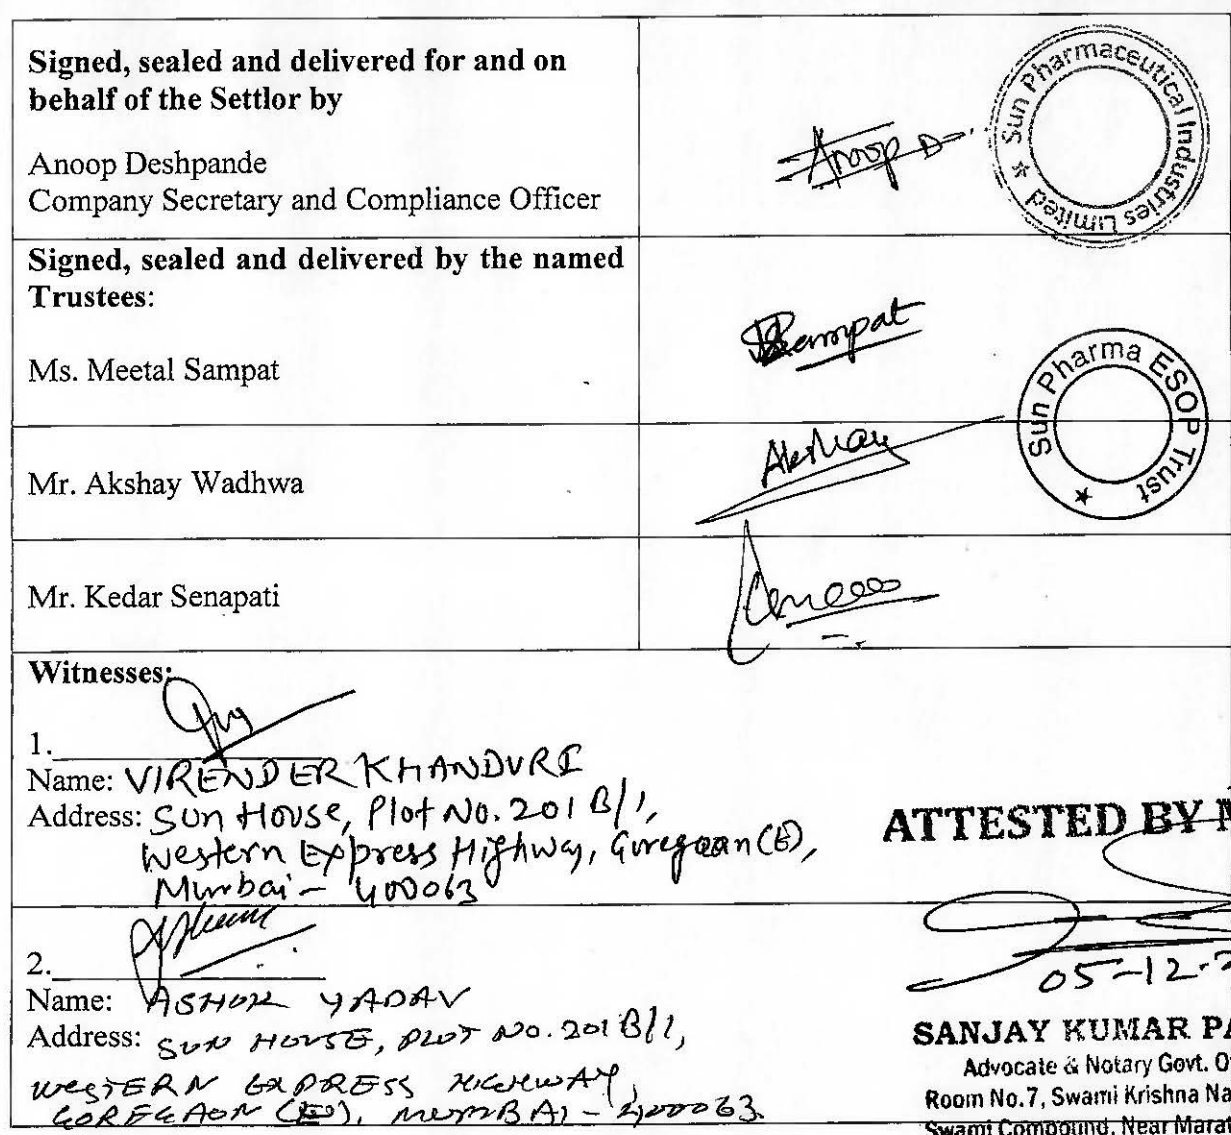 Signed, sealed and delivered for and on
behalf of the Settlor by
Anoop Deshpande
Company Secretary and Compliance Officer
Anoop D
Sun Pharmaceutical Industries Limited
Signed, sealed and delivered by the named
Trustees:
Ms. Meetal Sampat
Sampat
Sun Pharma ESOP Trust
Mr. Akshay Wadhwa
Akshay
Mr. Kedar Senapati
Witnesses:
1.
Name: VIRENDER KHANDURI
Address: Sun House, Plot No. 201 B/1,
Western Express Highway, Goregaon (E),
Mumbai - 400063
ATTESTED BY
2.
Name: ASHOK YADAV
Address: SUN HOUSE, PLOT NO. 201 B/1,
WESTERN EXPRESS HIGHWAY,
GOREGAON (E), MUMBAI - 400063.
05-12-2
SANJAY KUMAR PA
Advocate & Notary Govt. O
Room No.7, Swami Krishna Na
Swami Compound, Near Marat